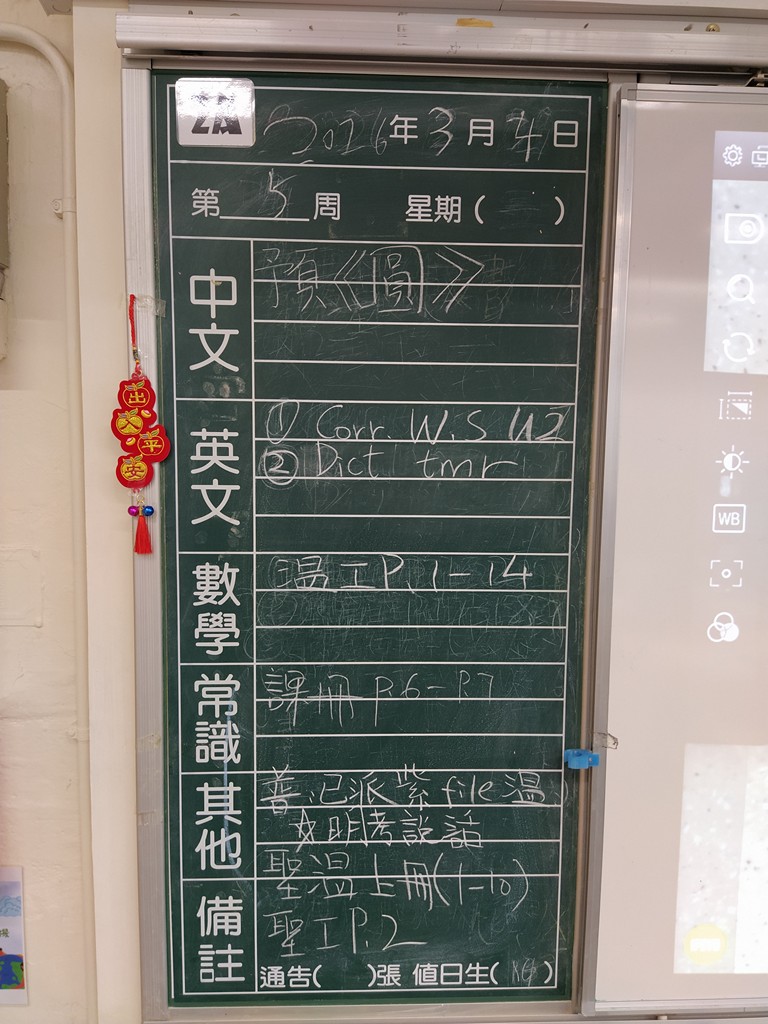 2A
2026年3月4日
第5周 星期( )
中文
預《圓》
英文
① Corr. W.S U2
② Dict tmr
數學
溫工P.1-14
常識
課冊 P.6-P.7
其他
普 已派紫file溫
☆明考說話
備註
聖溫上冊(1-10)
聖工P.2
通告( )張 值日生( )
出
入
平
安
WB